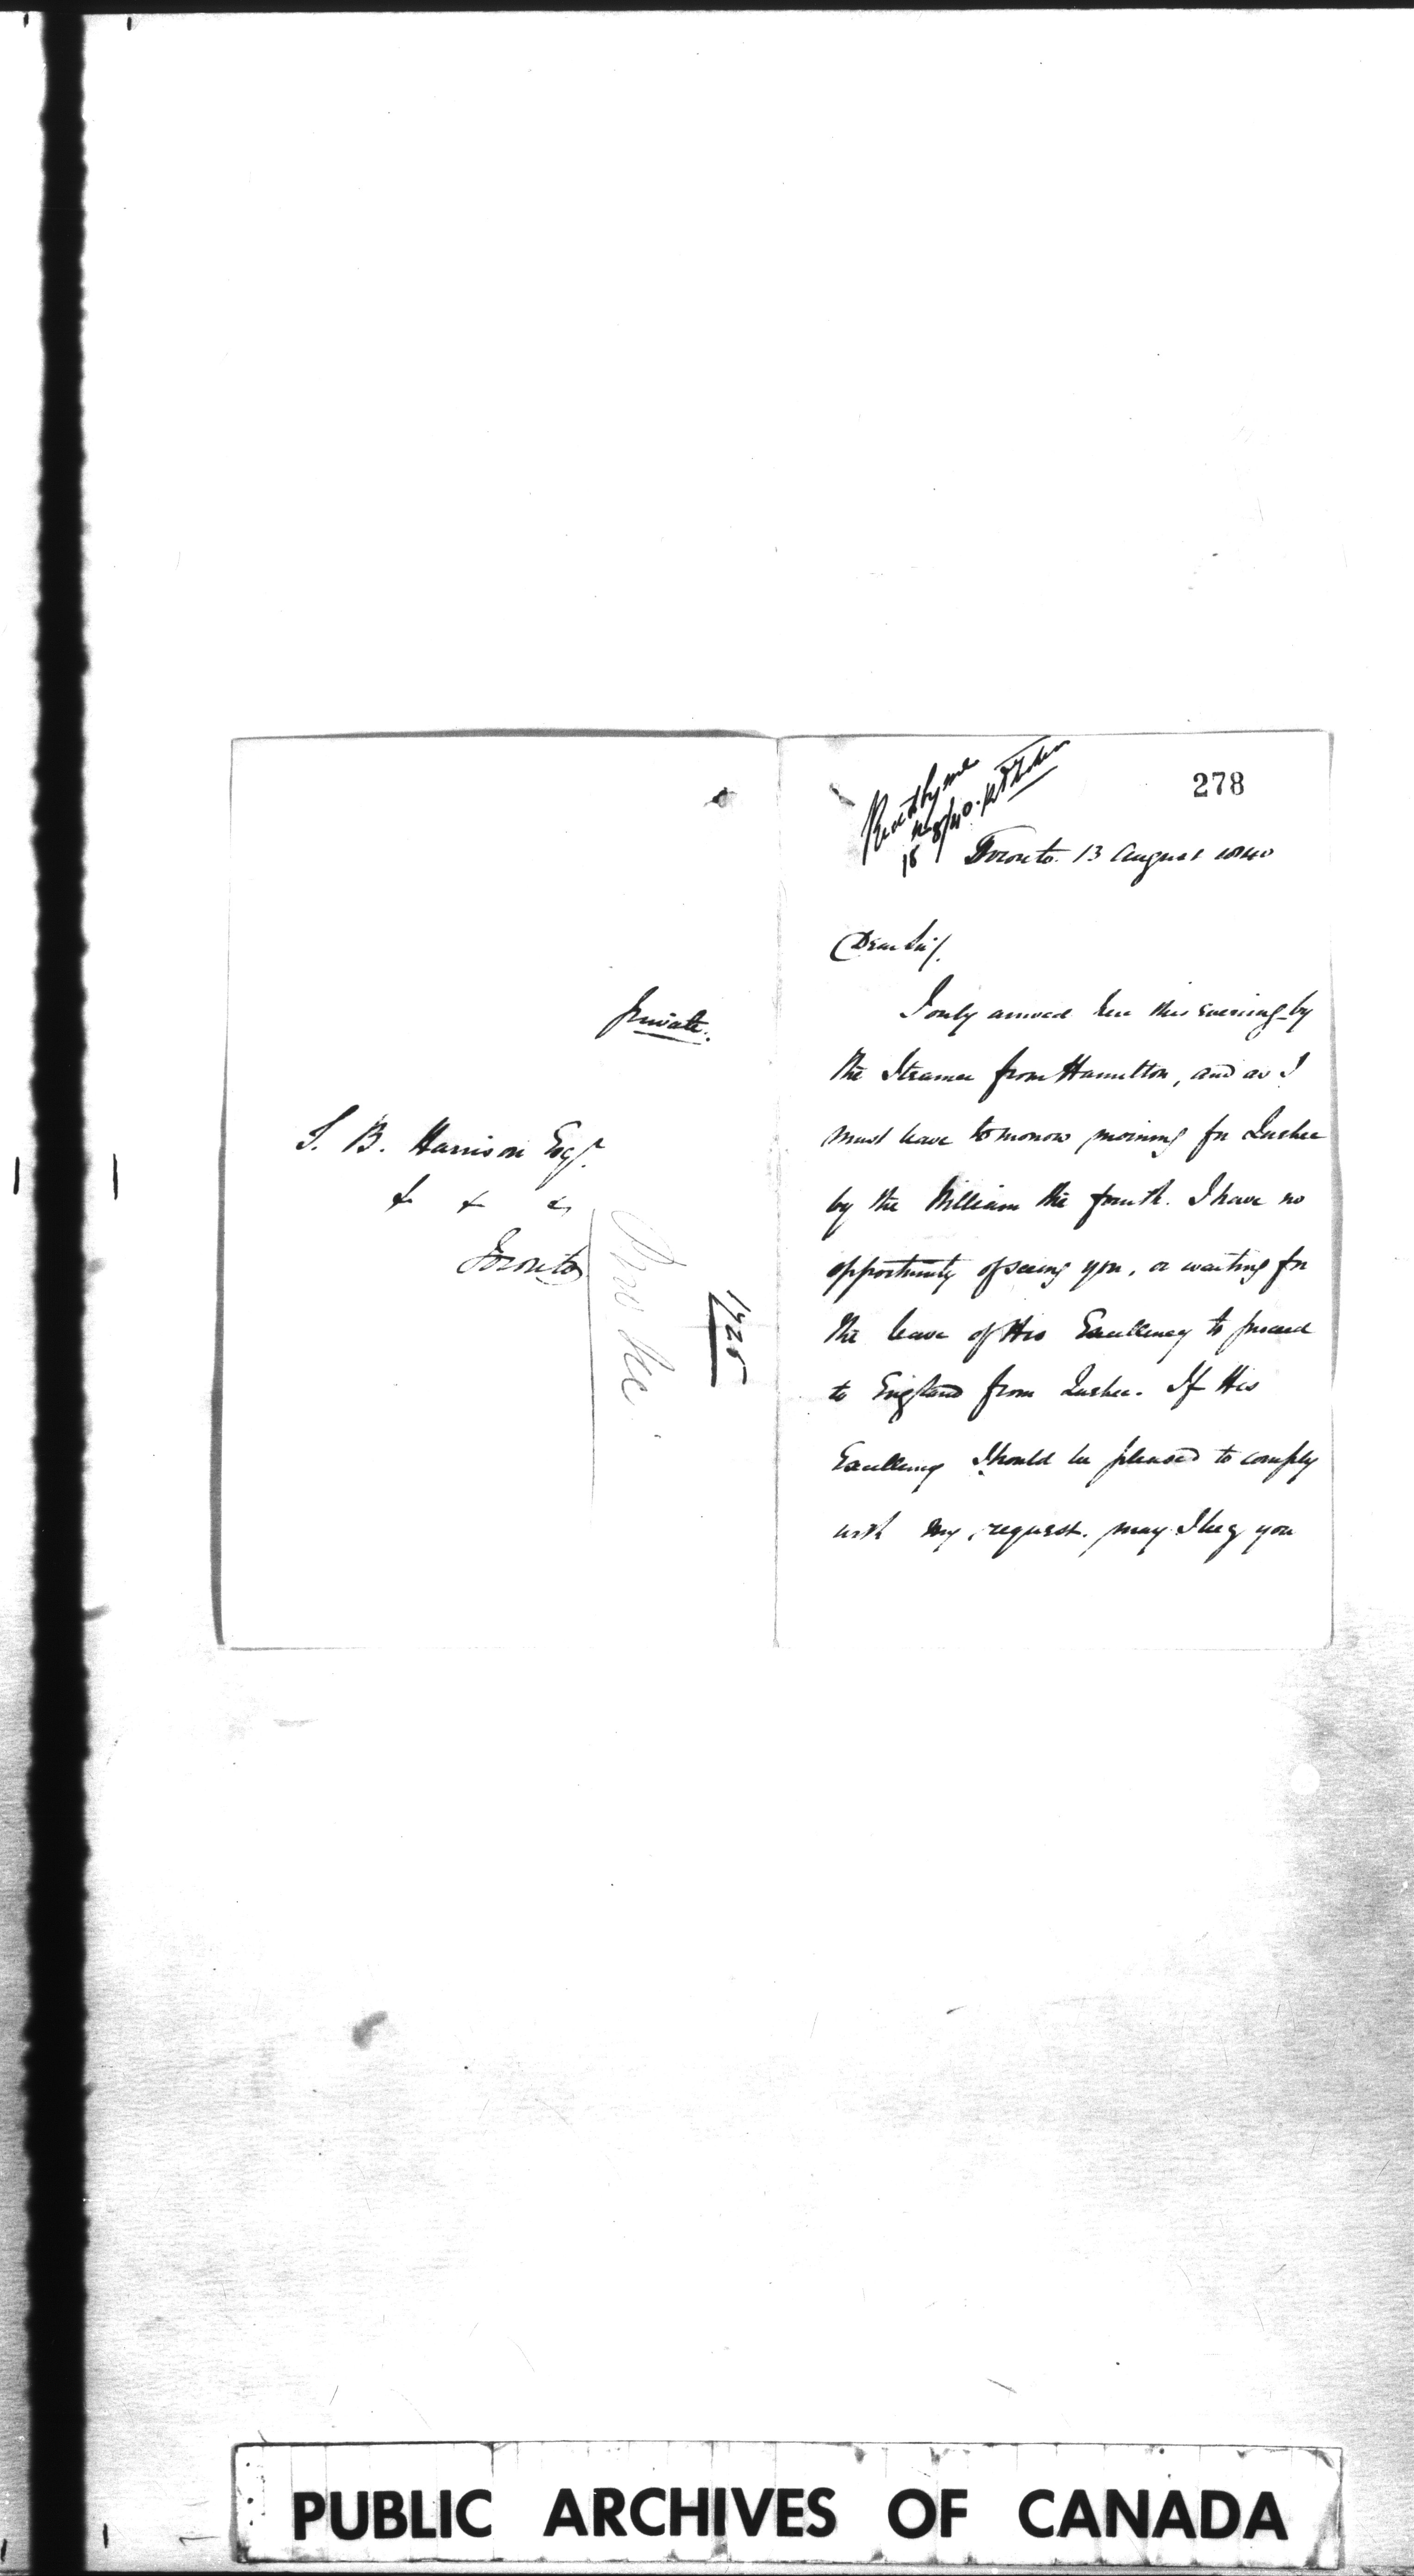 Private.
S. B. Harrison Esqr.
& & &
Toronto
1725
278
Recd by me
18
Toronto 13 August 1840
Dear Sir/.
I only arrived here this evening by
the Steamer from Hamilton, and as I
must leave tomorrow morning for Quebec
by the William the fourth. I have no
opportunity of seeing you, or waiting for
the leave of His Excellency to proceed
to England from Quebec. If His
Excellency Should be pleased to comply
with my request. may I beg you
PUBLIC ARCHIVES OF CANADA